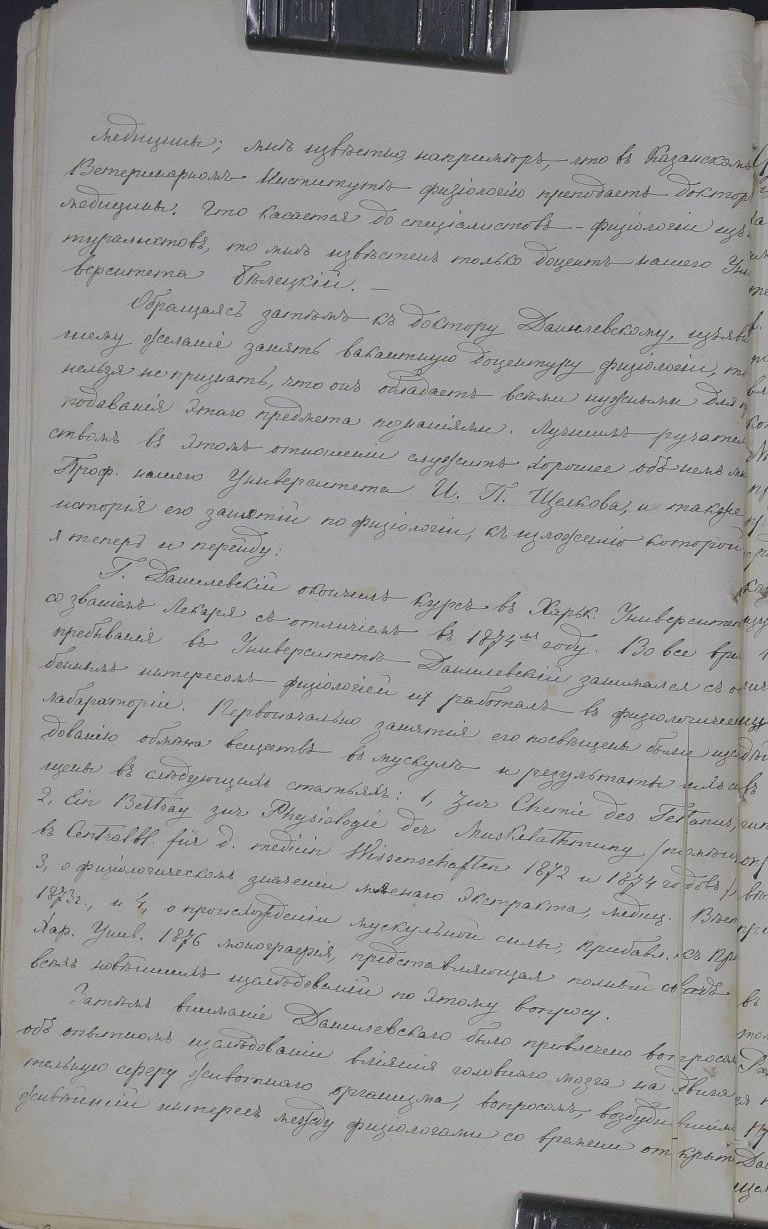 медицины; мнѣ извѣстно, напримѣръ, что въ Казанскомъ
Ветеринарномъ Институтѣ физіологію преподаетъ докторъ
медицины. Что касается до спеціалистовъ-физіологіи изъ
туралистовъ, то мнѣ извѣстенъ только доцентъ нашего Уни
верситета Бѣлецкій. —
Обращаясь затѣмъ къ доктору Данилевскому, изъяви
шему желаніе занять вакантную доцентуру физіологіи, то
нельзя не признать, что онъ обладаетъ всѣми нужными для п
подаванія этаго предмета познаніями. Лучшимъ ручател
ствомъ въ этомъ отношеніи служитъ хорошее объ немъ мн
Проф. нашего Университета И. П. Щелкова, а также
исторія его занятій по физіологіи, къ изложенію которой
я теперь и перейду:
Г. Данилевскій окончилъ курсъ въ Харьк. Университет
со званіемъ Лекаря съ отличіемъ въ 1874мъ году. Во все вре
пребыванія въ Университетѣ Данилевскій занимался съ о
беннымъ интересомъ физіологіей и работалъ въ физіологичес
лабараторіи. Первоначально занятія его посвящены были изслѣ
дованію обмѣна веществъ въ мускулѣ и результаты ихъ
щены въ слѣдующихъ статьяхъ: 1, Zur Chemie des Tetanus,
2, Ein Beitrag zur Physiologie der Muskelathmung
въ Centralbl. für d. medicin Wissenschaften 1872 и 1874 годовъ)
3, о физіологическомъ значеніи мяснаго экстракта, медиц. Вѣст
1873г., и 4, о происхожденіи мускульной силы, Прибавл. къ Пр
Хар. Унив. 1876 монографія, представляющая полный сводъ
всѣхъ новѣйшихъ изслѣдованій по этому вопросу.
Затѣмъ вниманіе Данилевскаго было привлечено вопросом
объ опытномъ изслѣдованіи вліянія головнаго мозга на двига
тельную сферу животнаго организма, вопросомъ, возбудившимъ
живѣйшій интересъ между физіологами со времени открыт